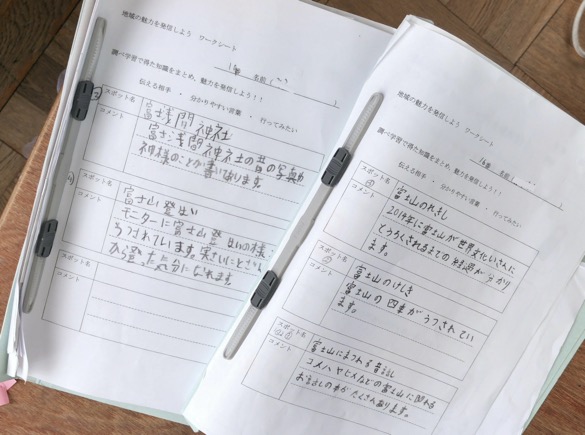 地域の魅力を発信しよう ワークシート
1番 名前( )
調べ学習で得た知識をまとめ、魅力を発信しよう!!
伝える相手 ・ 分かりやすい言葉 ・ 行ってみたい
スポット名
富士浅間神社
コメント
富士浅間神社の昔の写真
神様のことが書いてあります
スポット名
富士山登はい
コメント
モニターに富士山登はいの様
うつされています。実さいに
から登った気分になれます
スポット名
コメント
地域の魅力を発信しよう ワークシート
名前( )
調べ学習で得た知識をまとめ、魅力を発信しよう!!
伝える相手 ・ 分かりやすい言葉 ・ 行ってみたい
スポット名
富士山のれきし
コメント
富士山が世界文化いさんに
とうろくされるまでの経路が分かり
ます。
スポット名
富士山のけしき
コメント
富士山の四季がうつされてい
ます。
スポット名
富士山にまつわる昔話
コメント
コノハナサクヤヒメなどの富士山に関わる
お話の本がたくさんあります。